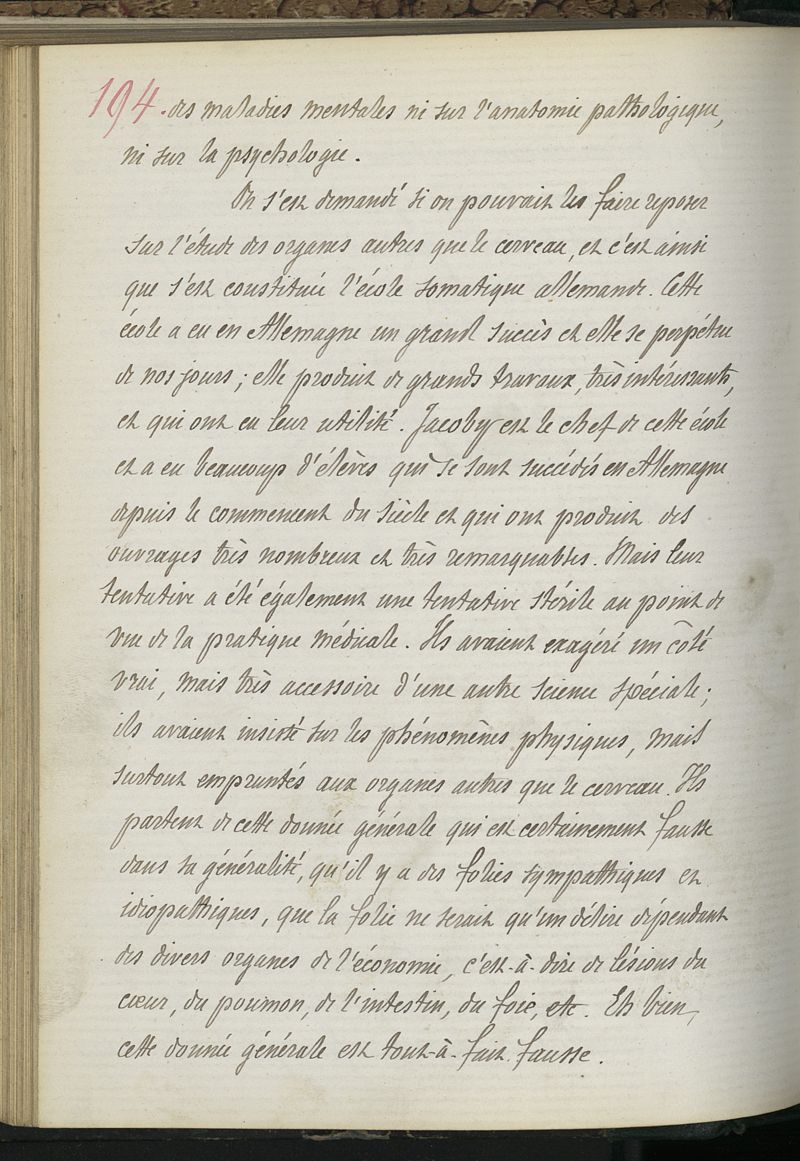 194. des maladies mentales ni sur l'anatomie pathologique,
ni sur la psychologie.
On s'est demandé si on pouvait les faire reposer
sur l'étude des organes autres que le cerveau, et c'est ainsi
que s'est constituée l'école somatique allemande. Cette
école a eu en Allemagne un grand succès et elle se perpétue
de nos jours ; elle produit de grands travaux, très intéressants,
et qui ont eu leur utilité. Jacoby est le chef de cette école
et a eu beaucoup d'élèves qui se sont succédés en Allemagne
depuis le commencent du siècle et qui ont produit des
ouvrages très nombreux et très remarquables. Mais leur
tentative a été également une tentative stérile au point de
vue de la pratique médicale. Ils avaient exagéré un côté
vrai, mais très accessoire d'une autre science spéciale ;
ils avaient insisté sur les phénomènes physiques, mais
surtout empruntés aux organes autres que le cerveau. Ils
partent de cette donnée générale qui est certainement fausse
dans sa généralité, qu'il y a des folies sympathiques et
idiopathiques, que la folie ne serait qu'un délire dépendant
des divers organes de l'économie, c'est-à-dire de lésions du
cœur, du poumon, de l'intestin, du foie, etc. Eh bien,
cette donnée générale est tout-à-fait fausse.